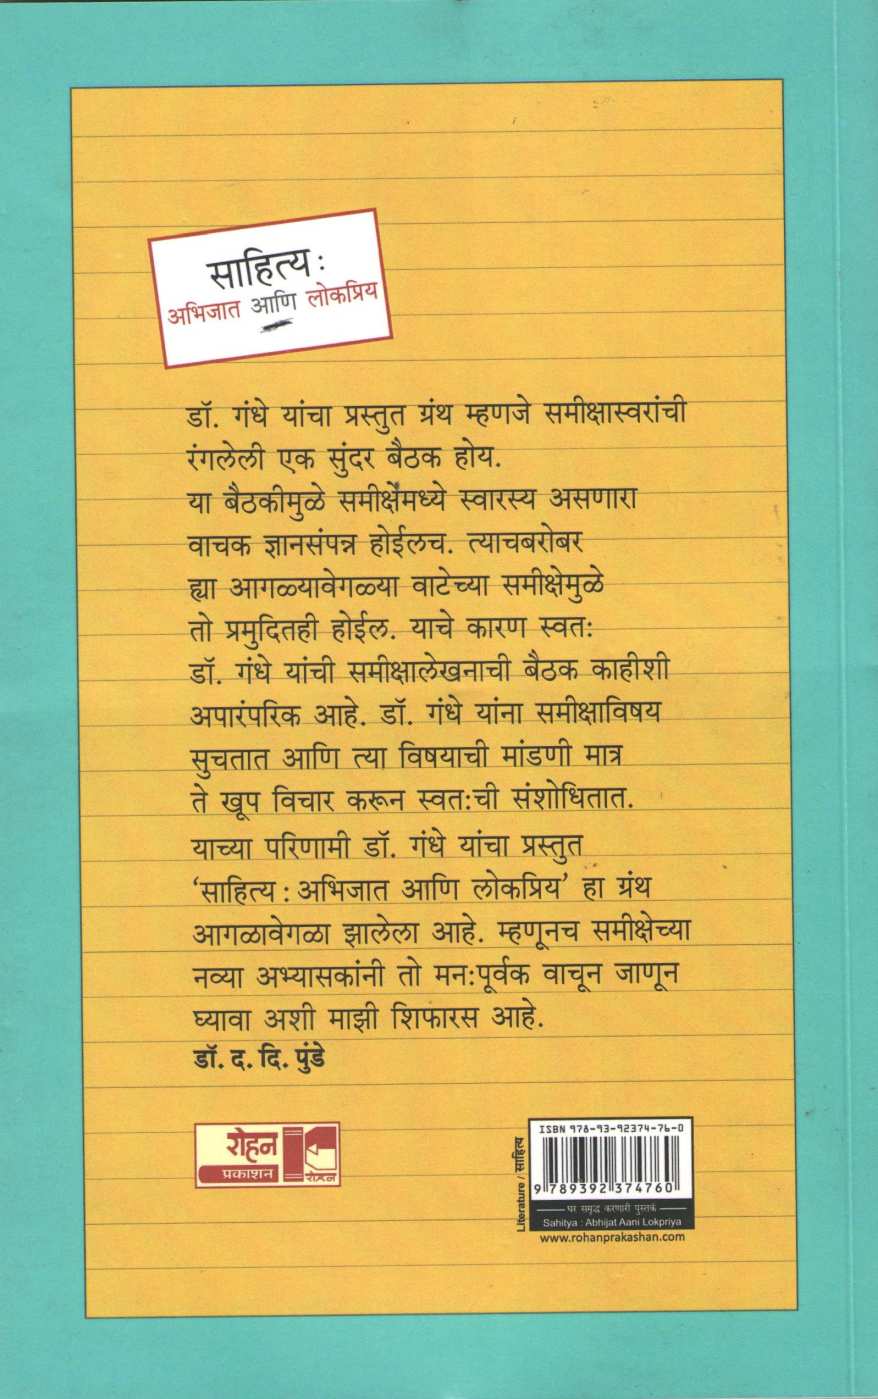 साहित्य :
अभिजात आणि लोकप्रिय
डॉ. गंधे यांचा प्रस्तुत ग्रंथ म्हणजे समीक्षास्वरांची
रंगलेली एक सुंदर बैठक होय.
या बैठकीमुळे समीक्षेंमध्ये स्वारस्य असणारा
वाचक ज्ञानसंपन्न होईलच. त्याचबरोबर
ह्या आगळ्यावेगळ्या वाटेच्या समीक्षेमुळे
तो प्रमुदितही होईल. याचे कारण स्वतः
डॉ. गंधे यांची समीक्षालेखनाची बैठक काहीशी
अपारंपरिक आहे. डॉ. गंधे यांना समीक्षाविषय
सुचतात आणि त्या विषयाची मांडणी मात्र
ते खूप विचार करून स्वतःची संशोधितात.
याच्या परिणामी डॉ. गंधे यांचा प्रस्तुत
‘साहित्य : अभिजात आणि लोकप्रिय’ हा ग्रंथ
आगळावेगळा झालेला आहे. म्हणूनच समीक्षेच्या
नव्या अभ्यासकांनी तो मनःपूर्वक वाचून जाणून
घ्यावा अशी माझी शिफारस आहे.
डॉ. द. दि. पुंडे
रोहन
प्रकाशन
रोहन
Literature / साहित्य
ISBN 978-93-92374-76-0
9 789392 374760
घर समृद्ध करणारी पुस्तकं
Sahitya : Abhijat Aani Lokpriya
www.rohanprakashan.com